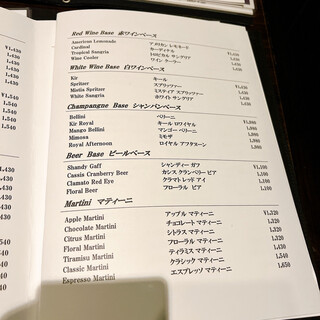 Red Wine Base 赤ワインベース
American Lemonade アメリカン レモネード ¥1,430
Cardinal カーディナル 1,430
Tropical Sangria トロピカル サングリア 1,430
Wine Cooler ワイン クーラー 1,430
White Wine Base 白ワインベース
Kir キール
Spritzer スプリッツァー
Mistia Spritzer ミスティア スプリッツァー
White Sangria ホワイト サングリア 1,430
Champangne Base シャンパンベース
Bellini ベリーニ
Kir Royal キール ロワイヤル
Mango Bellini マンゴー ベリーニ
Mimosa ミモザ
Royal Afternoon ロイヤル アフタヌーン
Beer Base ビールベース
Shandy Gaff シャンディー ガフ ¥1,100
Cassis Cranberry Beer カシス クランベリー ビア 1,100
Clamato Red Eye クラマト レッド アイ 1,100
Floral Beer フローラル ビア 1,100
Martini マティーニ
Apple Martini アップル マティーニ ¥1,320
Chocolate Martini チョコレート マティーニ 1,320
Citrus Martini シトラス マティーニ 1,320
Floral Martini フローラル マティーニ 1,320
Tiramisu Martini ティラミス マティーニ 1,320
Classic Martini クラシック マティーニ 1,320
Espresso Martini エスプレッソ マティーニ 1,650